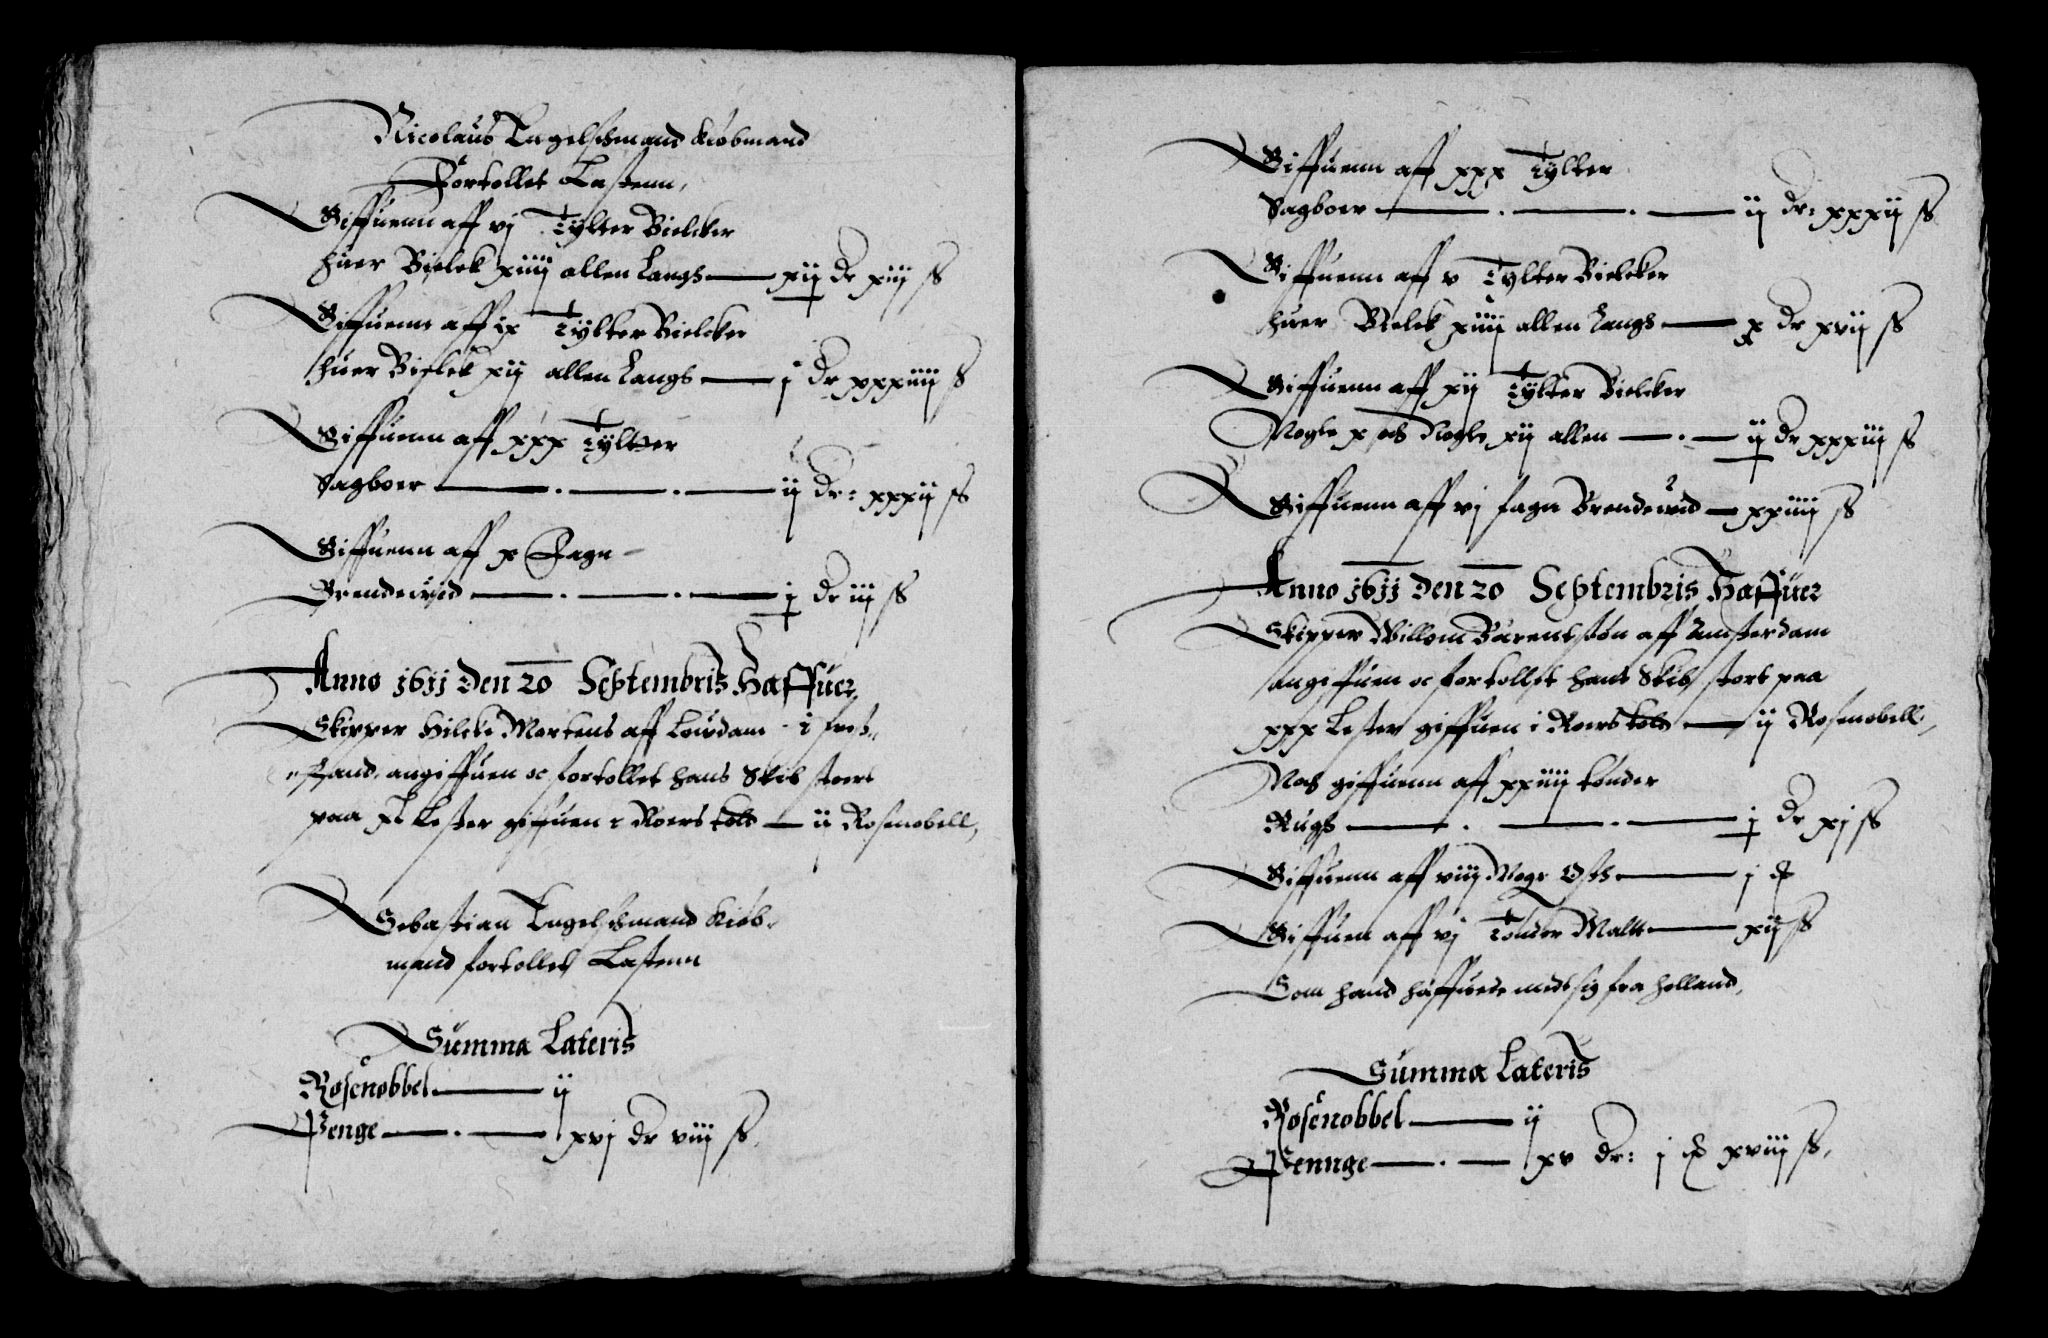 Nicolaus Engelschmand Kiøbmand
Fortollet Lastenn,
Giffuenn aff vj Tÿlter Bielcker
huer Bielck xiiij allen Langs — xij dr xiij ß
Giffuenn aff ix Tÿlter Bielcker
huer Bielck xij allen Langs — j dr xxxiiij ß
Giffuenn aff xxx Tÿltter
Sagboer — ij dr: xxxij ß
Giffuenn aff x Fagn
Brendeuid — j dr iij ß
Anno 1611 den 20 Septembris Haffuer
Skipper Hilcke Martens aff Loudam i
land, angiffuen oc fortollet hans Skib stoert
paa xl Lester giffuen i Roers tolt — ij Rosenobell,
Sebastian Engelschmand Kiøb-
mand fortollet Lastenn
Summa Lateris
Rosenobbel — ij
Penge — xvj dr viij ß
Giffuenn aff xxx Tÿlter
Sagboer — ij dr: xxxij ß
Giffuenn aff v Tÿlter Bielcker
huer Bielck xiiij allen Langs — x dr xvij ß
Giffuenn aff xij Tÿlter Bielcker
Nogle x och Nogle xij allen — ij dr xxxiij ß
Giffuenn aff vj fagn Brendeuid — xxiiij ß
Anno 1611 den 20 Septembris Haffuer
Skipper Willom Barentsøn aff Amsterdam
angiffuen oc fortollet hans Skib stort paa
xxx Lester giffuen i Roers tolt — ij Rosenobell,
Noch giffuenn aff xxiiij tønder
Rugh — j dr xj ß
Giffuenn aff viij Woge Osts — j
Giffuen aff vj Tønder Maltt — xij ß
Som hand haffuede medt sig fra Holland,
Summa Lateris
Rosenobbel — ij
Pennge — xv dr: j xviij ß,